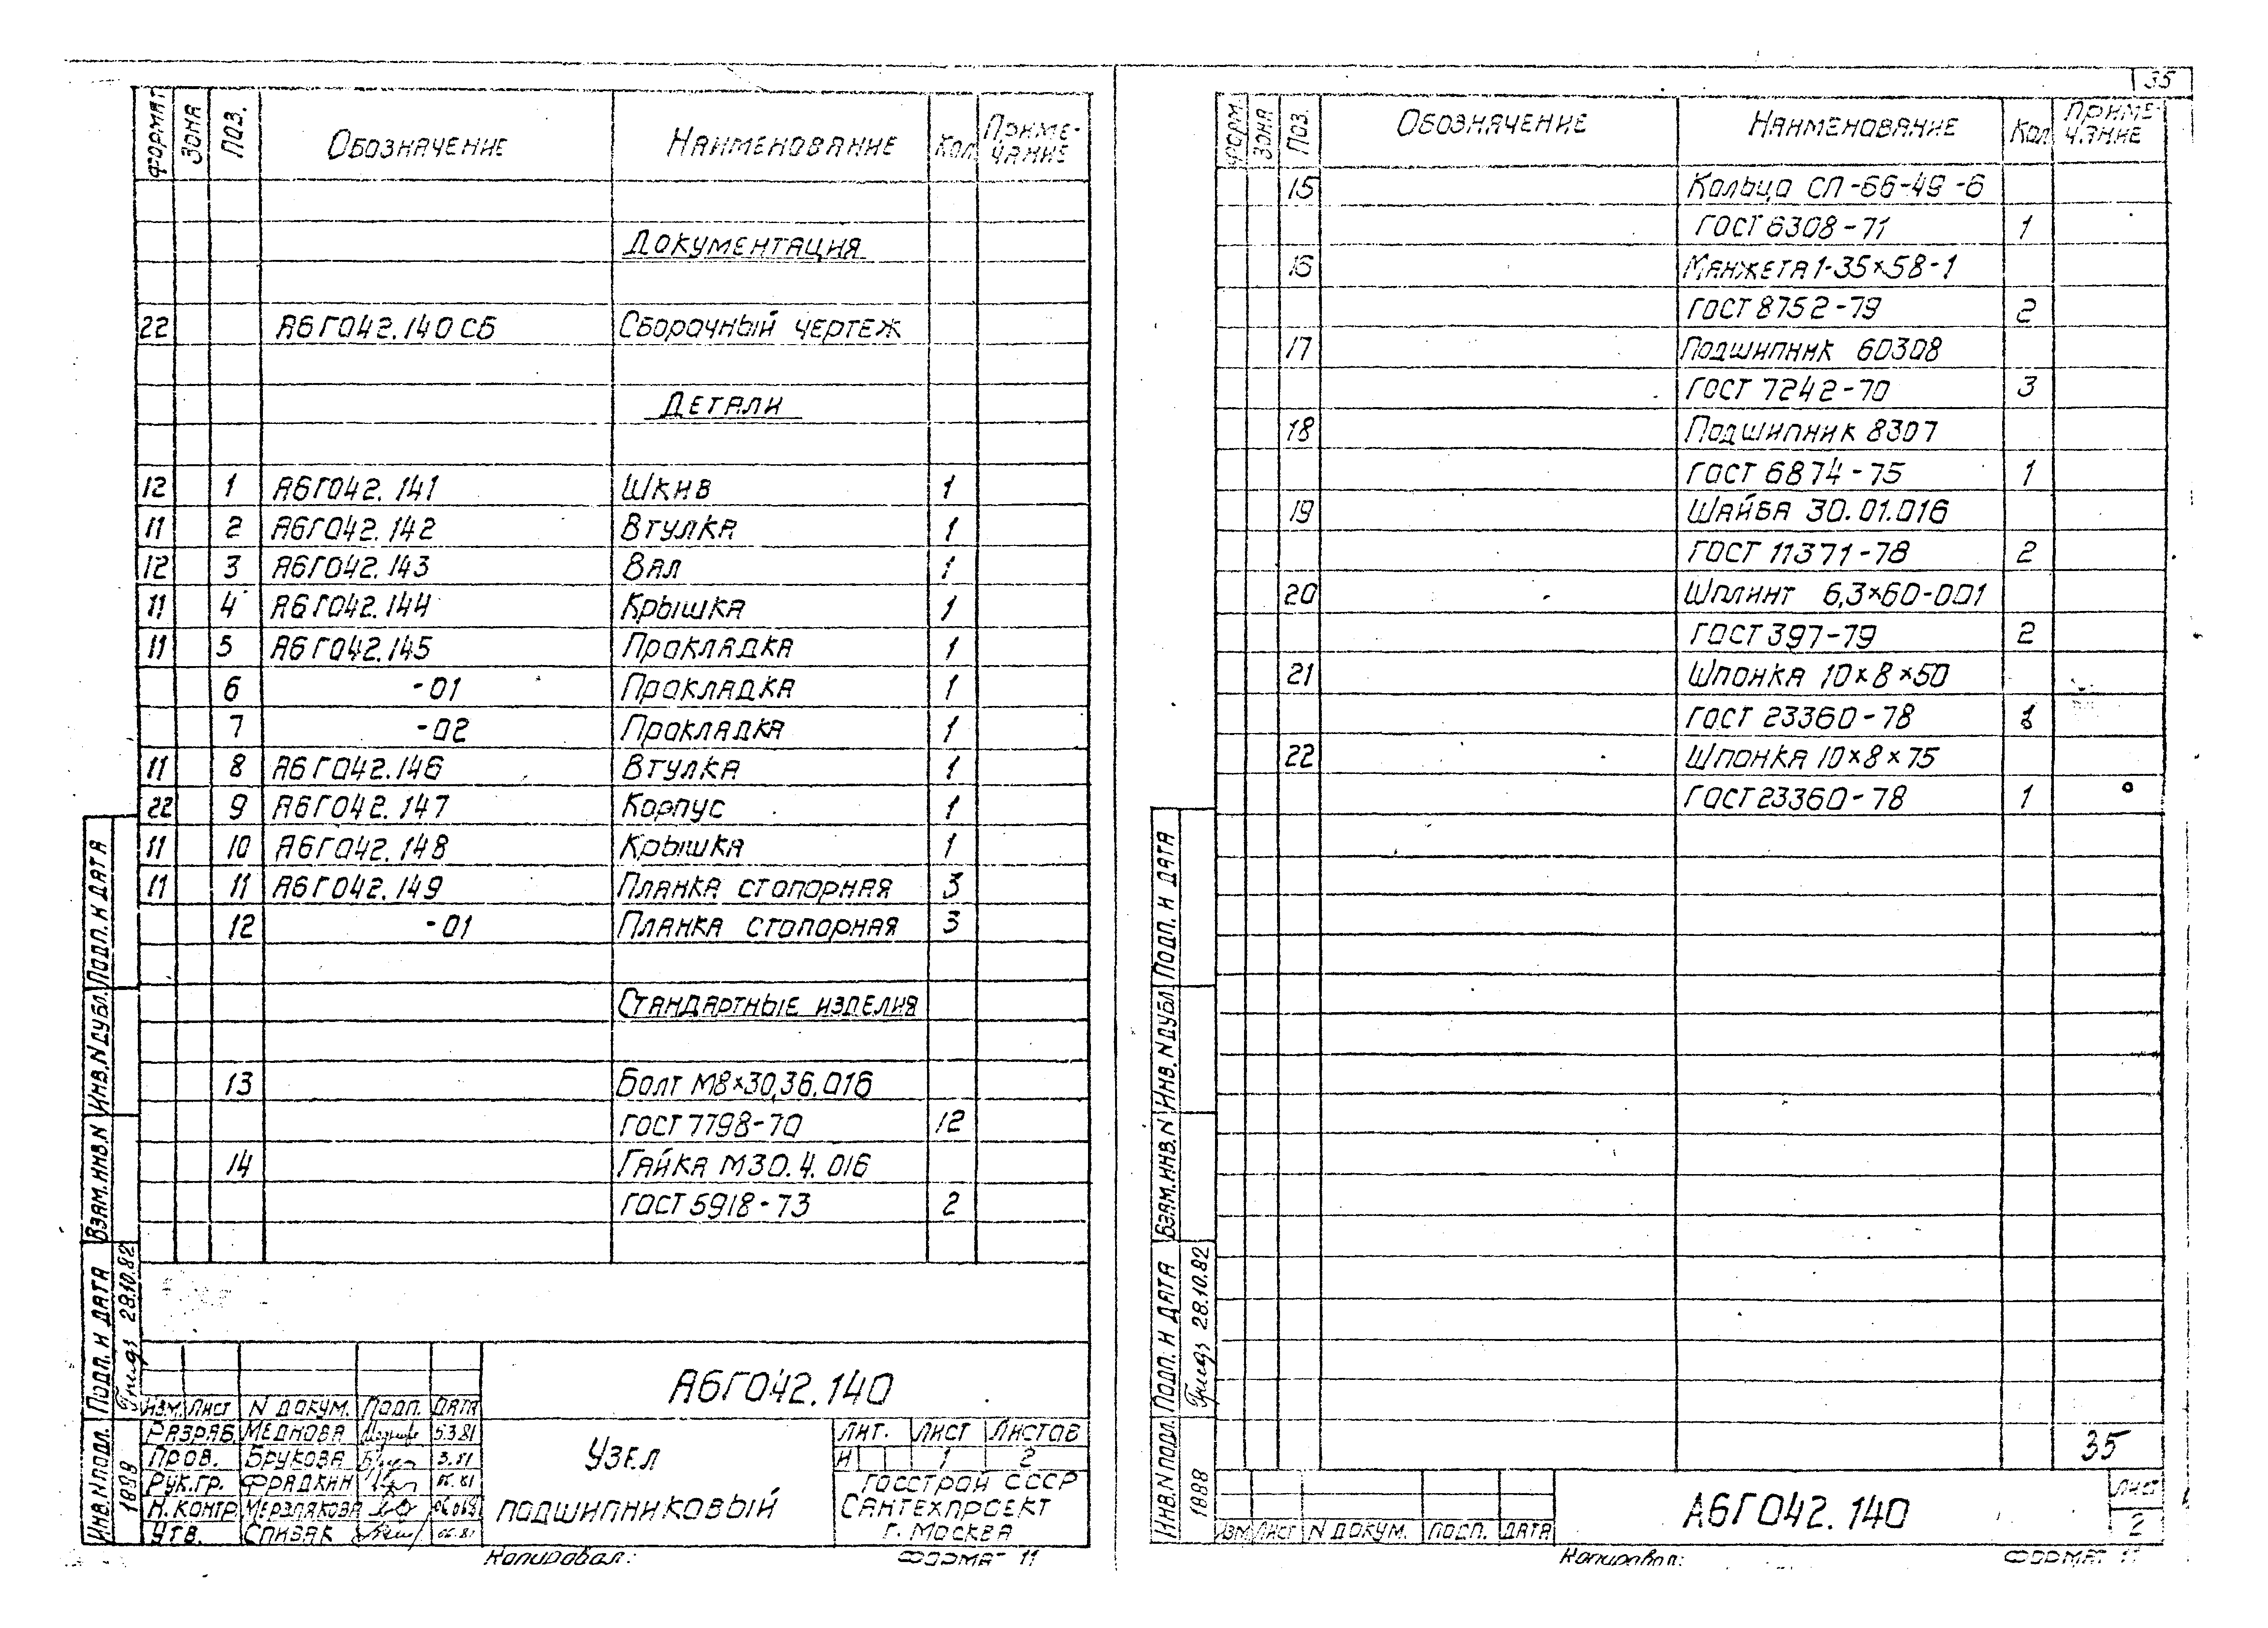 Формат Зона Поз. Обозначение Наименование Кол. Приме-
чание
Документация
22 А6Г042.140 СБ Сборочный чертеж
Детали
12 1 А6Г042.141 Шкив 1
11 2 А6Г042.142 Втулка 1
12 3 А6Г042.143 Вал 1
11 4 А6Г042.144 Крышка 1
11 5 А6Г042.145 Прокладка 1
6 -01 Прокладка 1
7 -02 Прокладка 1
11 8 А6Г042.146 Втулка 1
22 9 А6Г042.147 Корпус 1
11 10 А6Г042.148 Крышка 1
11 11 А6Г042.149 Планка стопорная 3
12 -01 Планка стопорная 3
Стандартные изделия
13 Болт М8×30,36.016
ГОСТ 7798-70 12
14 Гайка М30.4.016
ГОСТ 5918-73 2
Инв.N подл. Подп. и дата Взам.инв.N Инв.N дубл. Подп. и дата
1888 28.10.82
А6Г042.140
Изм. Лист N докум. Подп. Дата
Разраб. Меднова 5.3.81
Пров. Брукова 3.81
Рук.гр. Фрадкин
Н.контр. Мерзлякова
Утв. Спивак
Узел
подшипниковый
Лит. Лист Листов
И 1 2
Госстрой СССР
Сантехпроект
г. Москва
Копировал: Формат 11
35
Форм. Зона Поз. Обозначение Наименование Кол. Приме-
чание
15 Кольцо СП-66-49-6
ГОСТ 6308-71 1
16 Манжета 1-35×58-1
ГОСТ 8752-79 2
17 Подшипник 60308
ГОСТ 7242-70 3
18 Подшипник 8307
ГОСТ 6874-75 1
19 Шайба 30.01.016
ГОСТ 11371-78 2
20 Шплинт 6,3×60-001
ГОСТ 397-79 2
21 Шпонка 10×8×50
ГОСТ 23360-78
22 Шпонка 10×8×75
ГОСТ 23360-78 1
35
Инв.N подл. Подп. и дата Взам.инв.N Инв.N дубл. Подп. и дата
1888 28.10.82
Изм. Лист N докум. Подп. Дата
А6Г042.140
Лист
2
Копировал: Формат 11